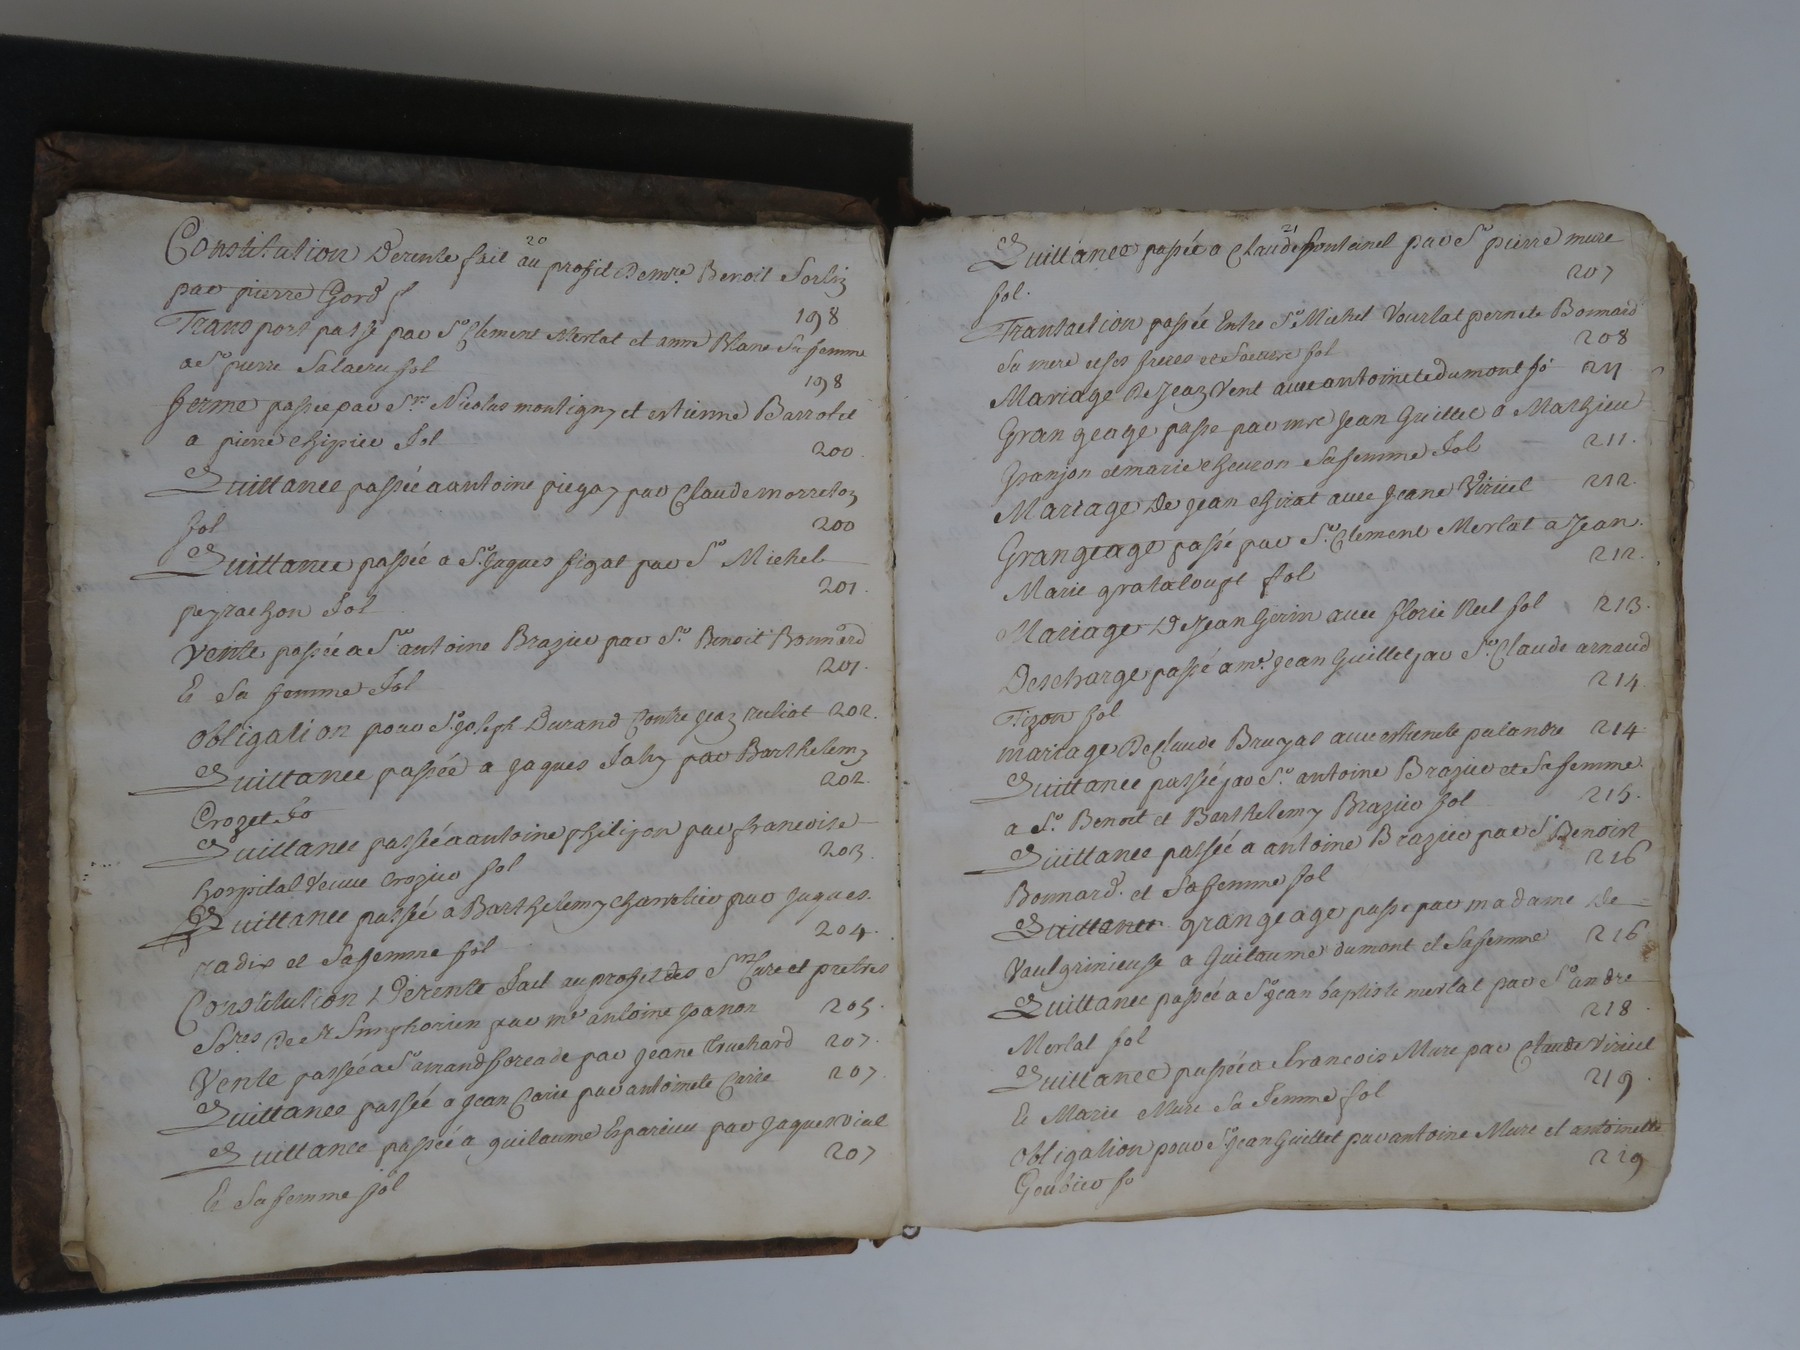 20
Constitution de rente fait au profit de mre. Benoit
par pierre Gord f
198
Transport passé par Sr. Clement Merlat et anne Blanc Sa femme
a Sr pierre Salaeru fol
198
ferme passee par Srs. Nicolas montigny et estienne Barrolet
a pierre chipier fol
200
Quittance passée a antoine piegay par Claude morreton
fol
200
Quittance passée a Sr. Jaques figat par Sr. Michel
201
peyrachon fol
Vente passée a Sr antoine Brazier par Sr. Benoit Bonnard
201.
Et Sa femme fol
Obligation pour Sr. Joseph Durand Contre jean 202.
Quittance passée a jaques par Barthelemy
202.
Crozet fo
Quittance passée a antoine philipon par francoise
203.
hospital Veuve Crozier fol
Quittance passée a Barthelemy par Jaques.
204.
radix et Sa femme fol
Constitution de rente fait au profit des Srs. Cure et prebres
So.res de St. Simphorien par me antoine Joanon 205.
Vente passée a Sr amand foreade par jeanne truchard 207.
Quittance passée a jean Carie par antoinete Carie 207
Quittance passée a guilaume Esparieu par jaques Vial
207
Et Sa femme fol
21
Quittance passée a Claude fontanel par Sr. pierre mure
207
fol.
Transaction passée Entre Sr. Michel Vourlat pernete Bonnard
208
Sa mere et ses freres et Soeurs fol
Mariage de Jean Vent avec antoinete dumont fo 211
Grangeage passe par mre Jean Guillet a Mathieu
211.
Granjon et marie Cheuzon Sa femme fol
Mariage de jean chirat avec jeane Viriel 212.
Grangeage passé par Sr. Clement Merlat a Jean.
212.
Marie grataloupt fol
Mariage de Jean Gerin avec florie Reel fol 213.
Descharge passé a mr. jean Guillet par Sr. Claude arnaud
214
Tizon fol
mariage de Claude Bruyas avec estienete palandre 214
Quittance passée par Sr. antoine Brazier et Sa femme.
215.
a Sr. Benoit et Barthelemy Brazier fol
Quittance passée a antoine Brazier par Sr Benoist
216
Bonnard. et Sa femme fol
Quittance grangeage passe par madame De
Vaulgrinieuse a Guilaume dumont et Sa femme 216
Quittance passée a Sr jean baptiste merlat par Sr andre
218.
Merlat fol
Quittance passée a francois Mure par Claude Viriel
219.
Et Marie Mure Sa femme fol
Obligation pour Sr. jean Guillet par antoine Mure et antoinette
219
Goubier fo